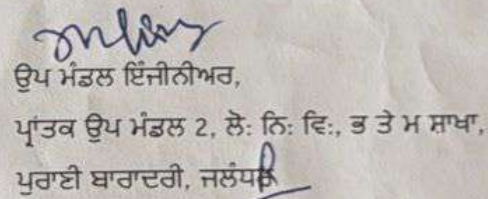 ਉਪ ਮੰਡਲ ਇੰਜੀਨੀਅਰ,
ਪ੍ਰਾਂਤਕ ਉਪ ਮੰਡਲ 2, ਲੋ: ਨਿ: ਵਿ:, ਭ ਤੇ ਮ ਸ਼ਾਖਾ,
ਪੁਰਾਣੀ ਬਾਰਾਦਰੀ, ਜਲੰਧਰ